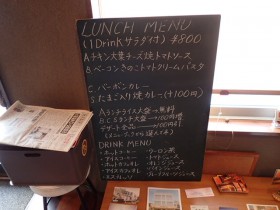 LUNCH MENU
(1Drinkサラダ付) ¥800
Aチキン大葉チーズ焼トマトソース
Bベーコンきのこトマトクリームパスタ
C.バーボンカレー
S.たまご入り焼カレー(+100円)
Aランチライス大盛→無料
B.C.Sランチ大盛→100円増
デザート全品
DRINK MENU
・ホットコーヒー ・ウーロン茶
・アイスコーヒー ・トマトジュース
・ホットカフェオレ ・オレンジジュース
・アイスカフェオレ
・グレープフルーツジュース